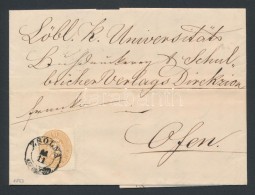 Löbl. K. Universitäts
Buchdruckerey & Schul
bücher Verlags Direkzion
franko
Ofen.
ZSOLNA